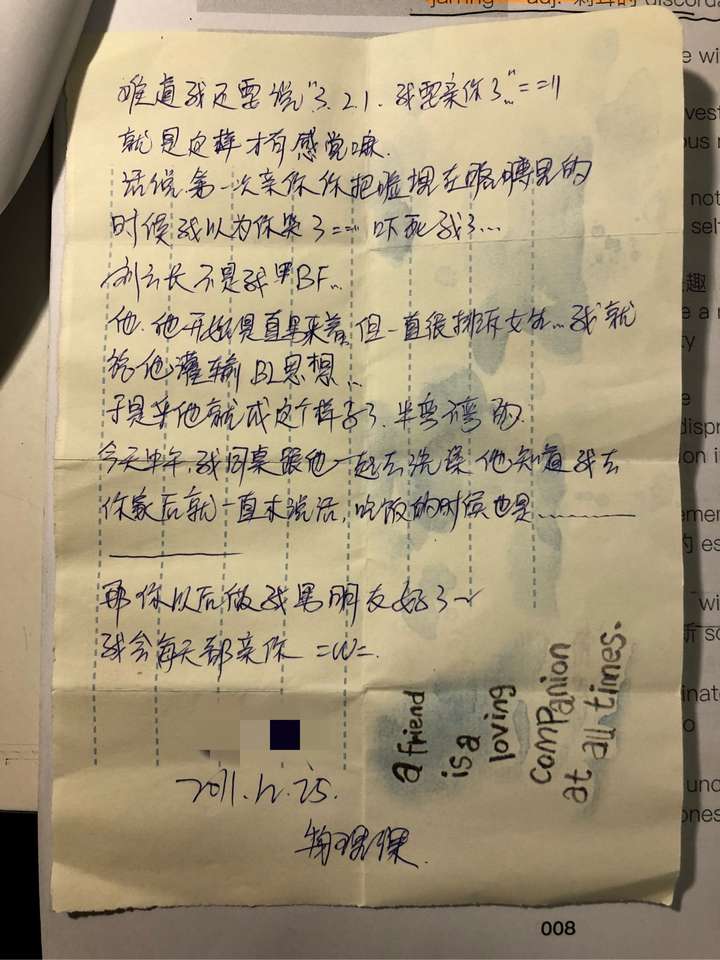 jarring adj. 刺耳的 discorda
难道我还要说"3.2.1.我要亲你了…"==||
就是这样才有感觉嘛.
话说第一次亲你你把脸埋在胳膊里的
时候我以为你哭了==||吓死我了…
不是我男BF…
他.他开始是直男来着,但一直很排斥女生…我就
给他灌输BL思想…
于是乎他就成这个样子了.半弯不弯的.
今天中午,我同桌跟他一起去洗澡.他知道我去
你家后就一直未说话,吃饭的时候也是………
那你以后做我男朋友好了~
我会每天都亲你 =w=.
2011.12.25.
a friend
is a
loving
companion
at all times.
008